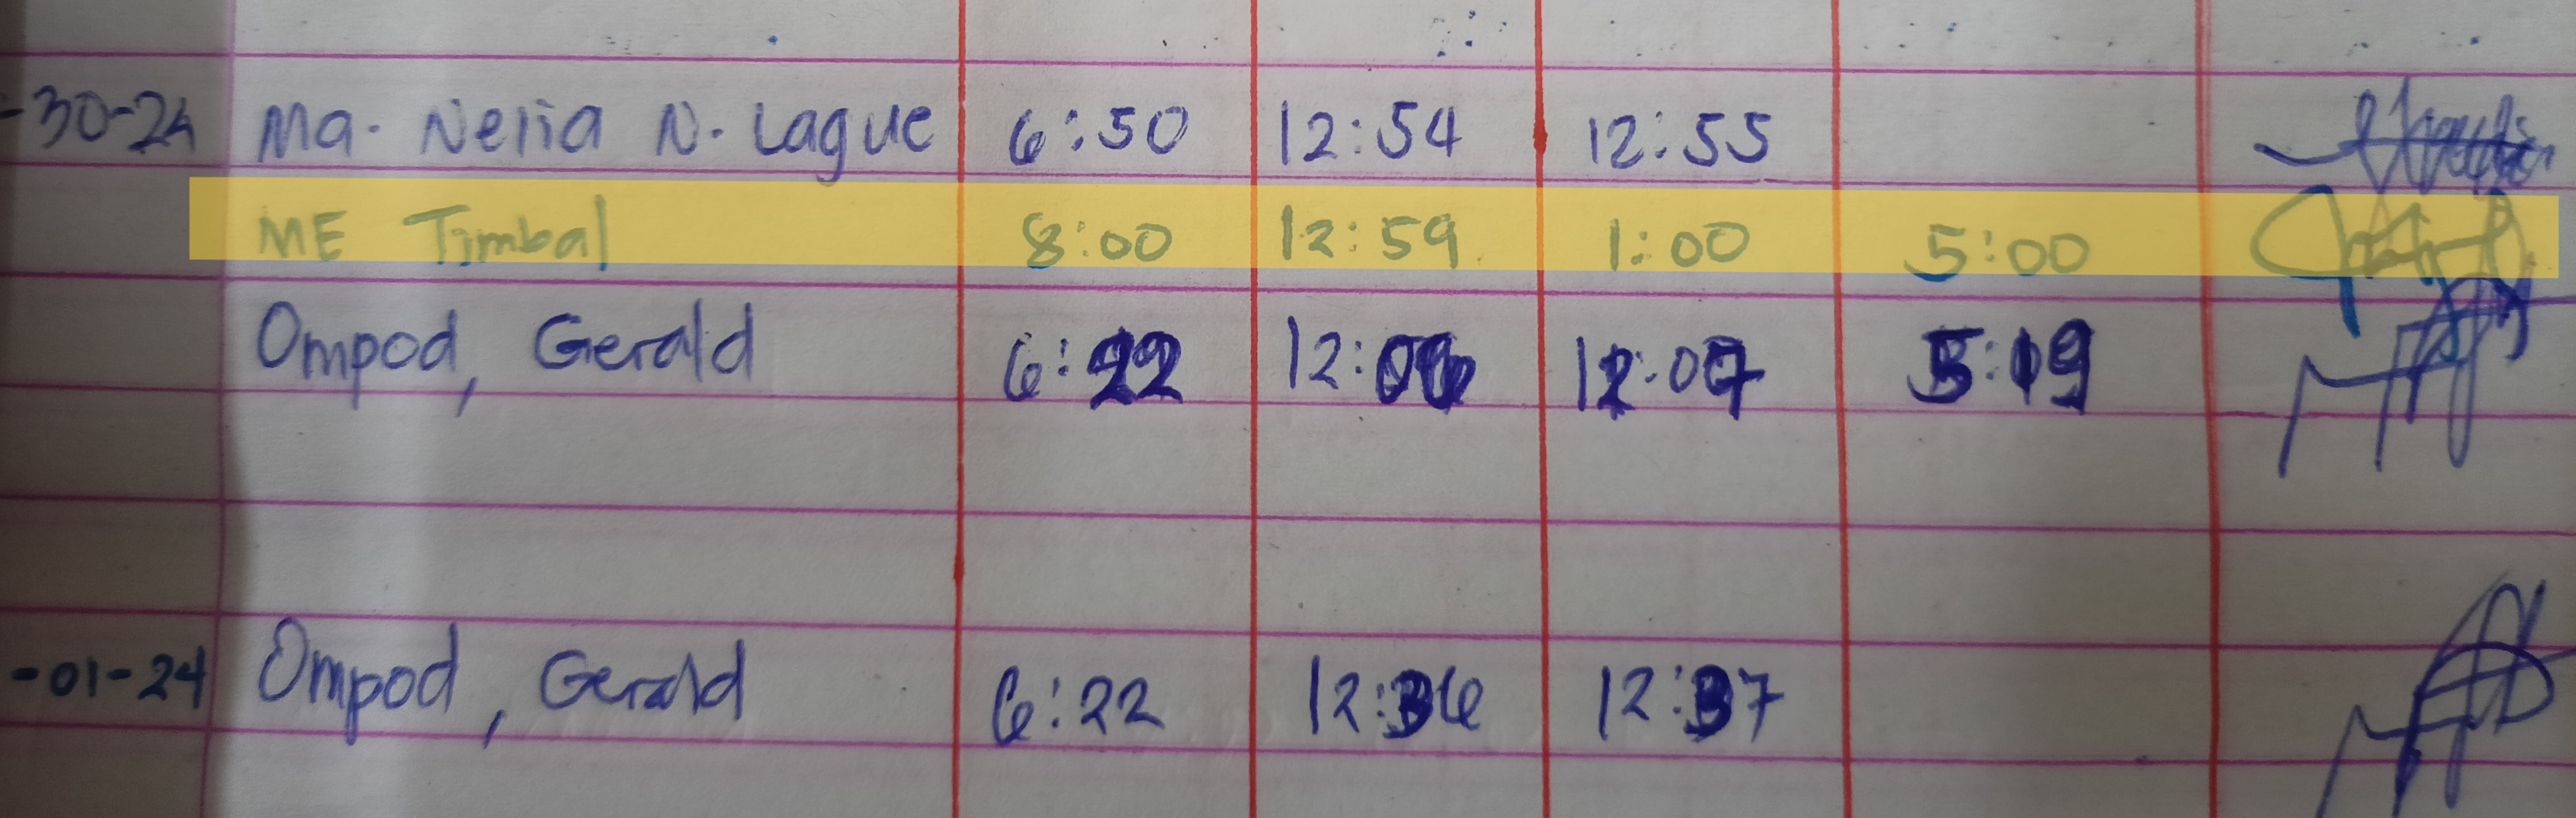 -30-24 Ma. Nelia N. Lague 6:50 12:54 12:55
ME Timbal 8:00 12:59 1:00 5:00
Ompod, Gerald 6:22 12:06 12:07 5:19
-01-24 Ompod, Gerald 6:22 12:36 12:37